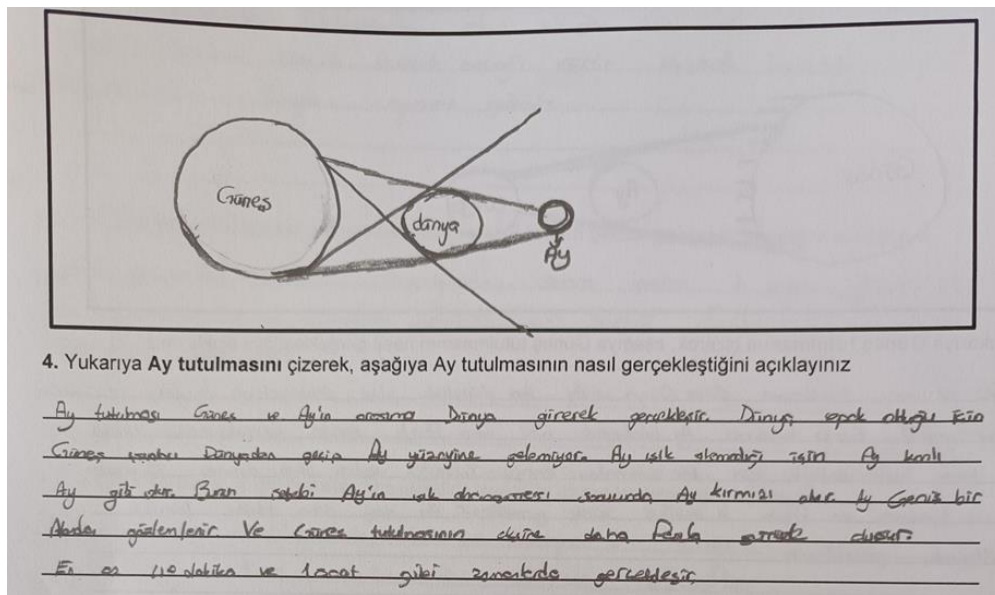 Güneş
dünya
Ay
4. Yukarıya Ay tutulmasını çizerek, aşağıya Ay tutulmasının nasıl gerçekleştiğini açıklayınız
Ay tutulması Güneş ve Ay'ın arasına Dünya girerek gerçekleşir. Dünya opak olduğu için
Güneş Dünyadan geçip Ay yüzeyine gelemiyor. Ay ışık alamadığı için Ay kanlı
Ay gibi olur. sebebi Ay'ın ışık sonucunda Ay kırmızı olur. Ay Geniş bir
Alanda gözlemlenir Ve Güneş tutulmasının daha fazla
En az dakika ve 1 saat gibi zamanlarda gerçekleşir.